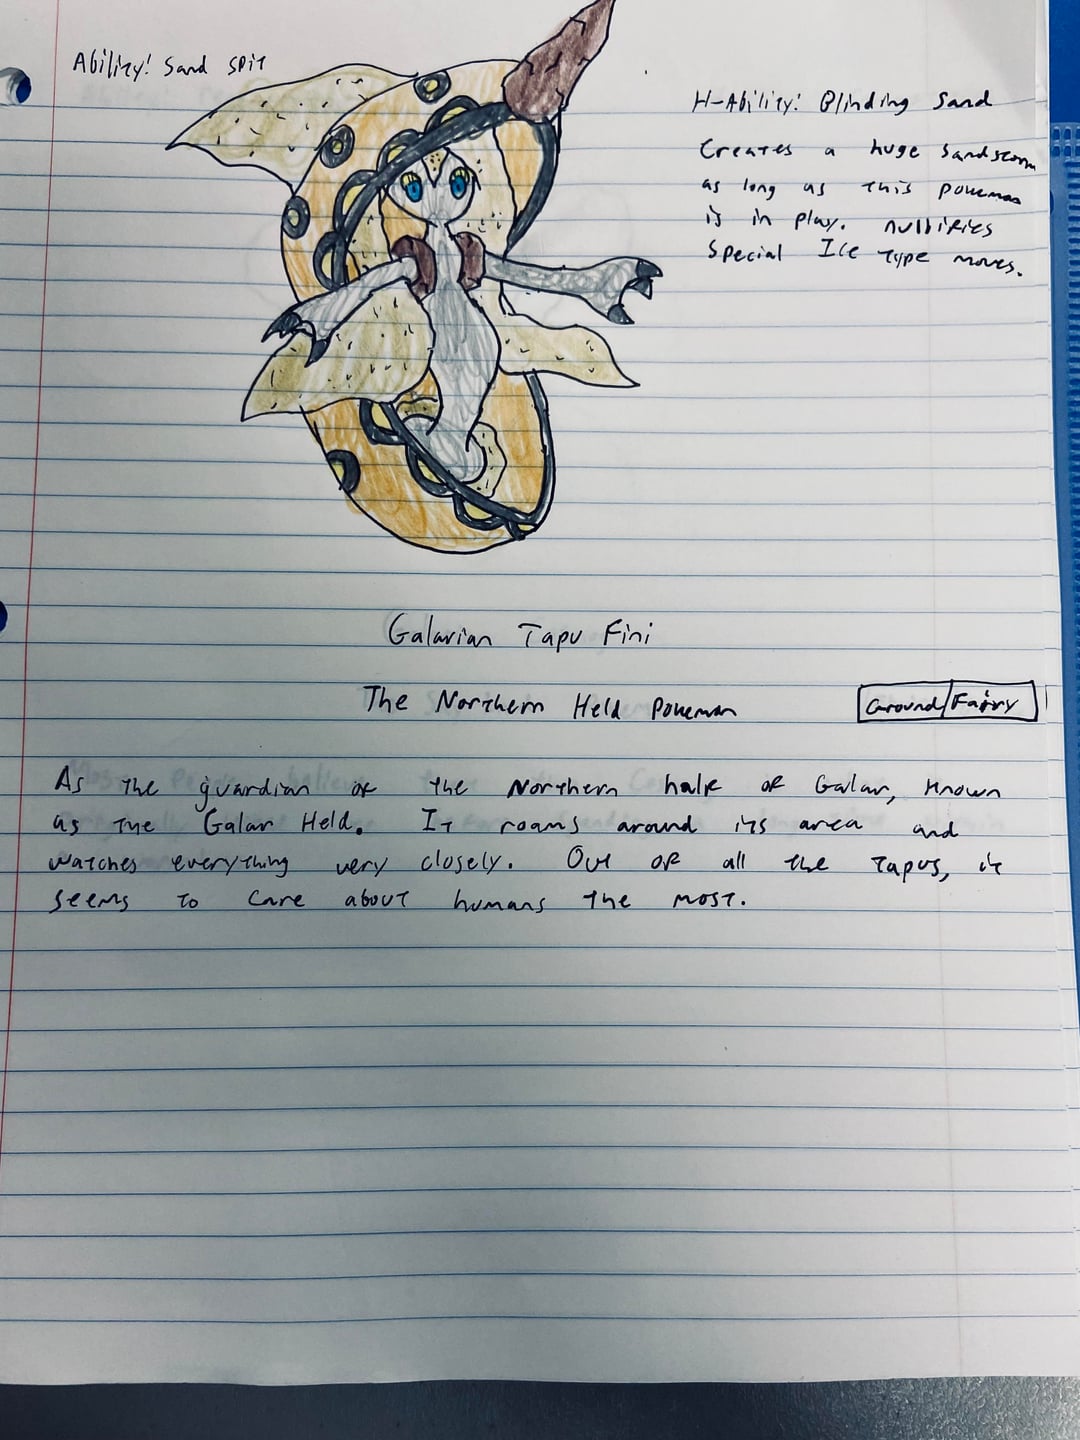 Ability: Sand Spit
H-Ability: Blinding Sand
Creates a huge sandstorm
as long as this pokemon
is in play. nullifies
special Ice type moves.
Galarian Tapu Fini
The Northern Held Pokemon
Ground/Fairy
As the guardian of the Northern half of Galar, known
as the Galar Held. It roams around its area and
watches everything very closely. Out of all the Tapus, it
seems to care about humans the most.